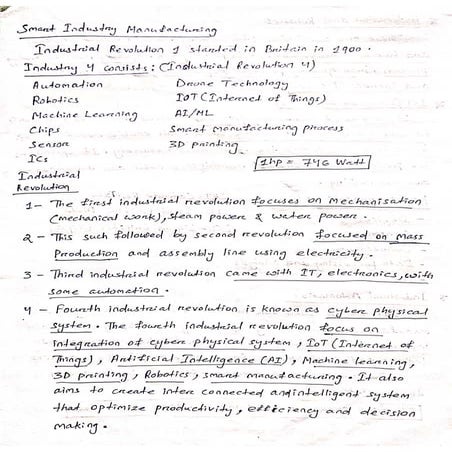 Smart Industry Manufacturing
Industrial Revolution 1 started in Britain in 1900.
Industry 4 consists: (Industrial Revolution 4)
Automation Drone Technology
Robotics IoT (Internet of Things)
Machine Learning AI/ML
Chips Smart manufacturing process
Sensor 3D printing
ICs
1hp = 746 Watt
Industrial
Revolution
1- The first industrial revolution focuses on mechanisation
(mechanical work), steam power & water power.
2 - This such followed by second revolution focused on mass
Production and assembly line using electricity.
3 - Third industrial revolution came with IT, electronics, with
some automation.
4 - Fourth industrial revolution is known as cyber physical
system. The fourth industrial revolution focus on
integration of cyber physical system, IoT (Internet of
Things), Artificial Intelligence (AI), Machine learning,
3D printing, Robotics, smart manufacturing. It also
aims to create inter connected and intelligent system
that optimize productivity, efficiency and decision
making.